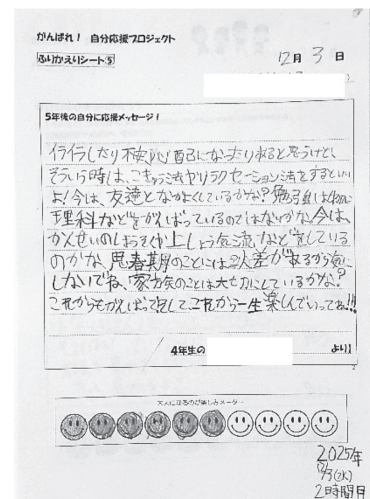 がんばれ！ 自分応援プロジェクト
12月 3 日
ふりかえりシート⑤
5年後の自分に応援メッセージ！
イライラしたり不安、心配になったりあると思うけど、
そういう時は、こきゅう法やリラクセーション法をするといい
よ！今は、友達となかよくているかな？勉強は
理科などをがんばっているのではないかな。今は、
かんせいのしおるや上しょう気流などをしている
のかな。思春期のことには個人差があるから気に
しないでね、家族のことは大切にしているかな？
これからもがんばって これから一生楽しんでいってね!!!
4年生の
より!!
大人になるのが楽しみメーター
2025年
12/3(水)
2時間目